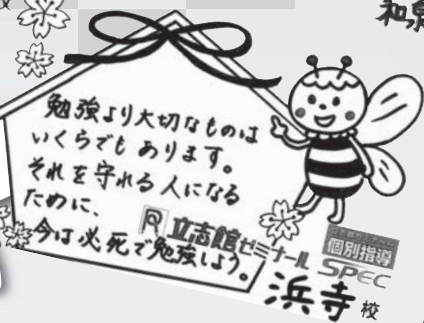 和泉
勉強より大切なものは
いくらでもあります。
それを守れる人になる
ために、
今は必死で勉強しよう。
立志館ゼミナール
個別指導
SPEC
浜寺校